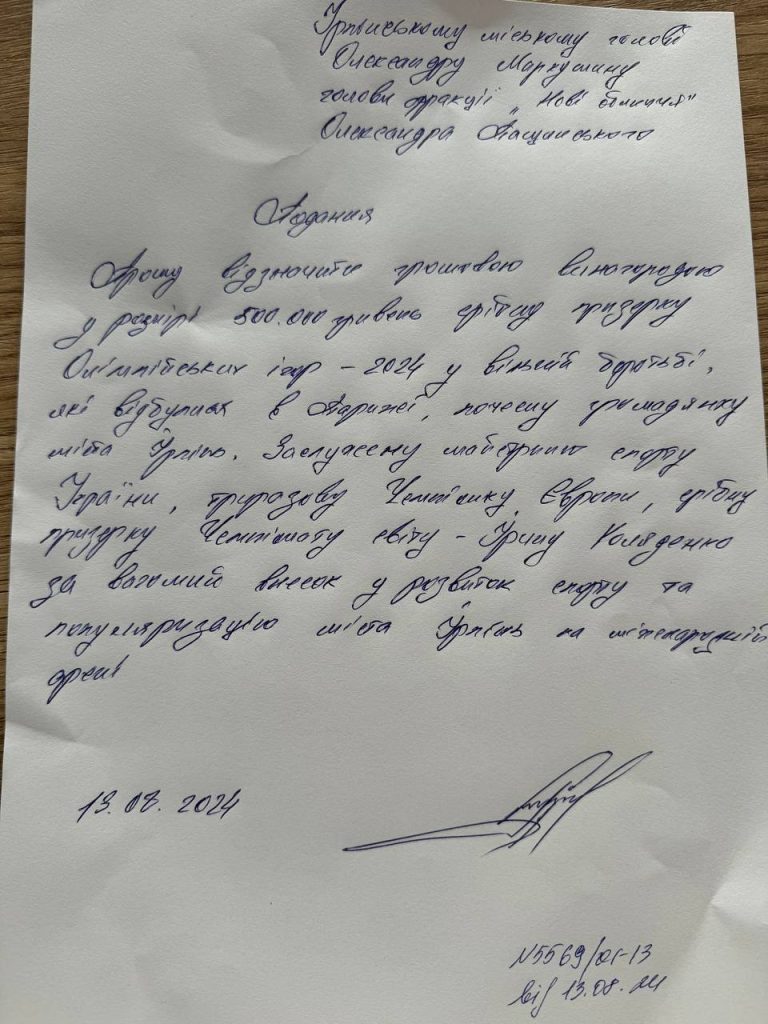 Ірпінському міському голові
Олександру Маркушину
голови фракції „Нові обличчя"
Олександра Пащинського
Подання
Прошу відзначити грошовою винагородою
у розмірі 500.000 гривень срібну призерку
Олімпійських ігор – 2024 у вільній боротьбі,
які відбулися в Парижі, почесну громадянку
міста Ірпінь. Заслужену майстриню спорту
України, триразову Чемпіонку Європи, срібну
призерку Чемпіонату світу – Ірину Коляденко
за вагомий внесок у розвиток спорту та
популяризацію міста Ірпінь на міжнародній
арені
13.08.2024
N5569/01-13
від 13.08.24